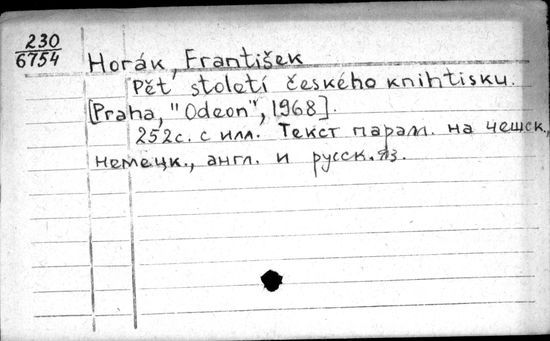 230
6754
Horák, František
Pět století českého knihtisku.
[Praha, "Odeon", 1968].
252с. с илл. Текст парал. на чешск.,
немецк., англ. и русск. яз.